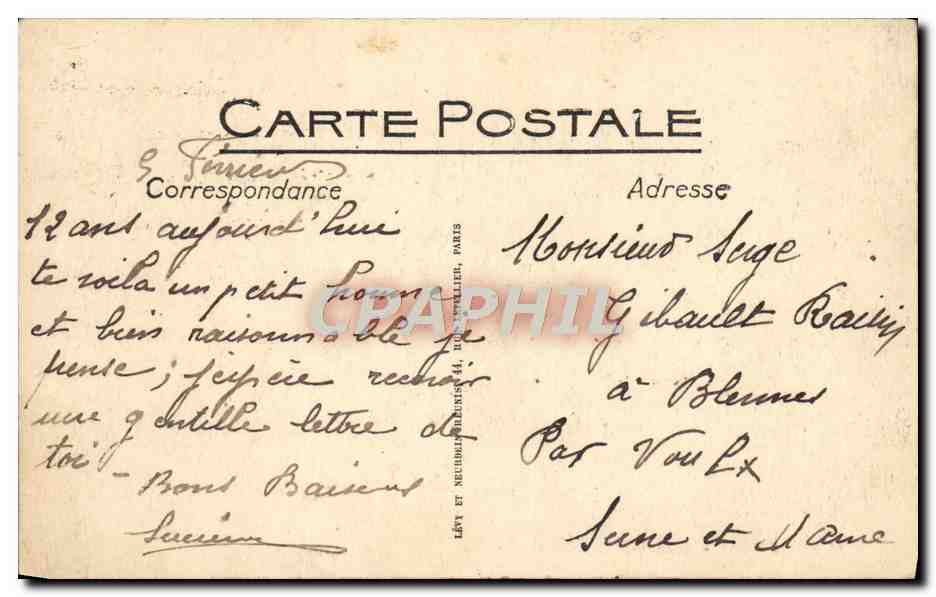 CARTE POSTALE
Correspondance
12 ans aujourd'hui
te voila un petit homme
et bien raisonnable je
pense; j'espère recevoir
une gentille lettre de
toi -
Bons Baisers
LÉVY ET NEURDEIN RÉUNIS, 44, RUE LETELLIER, PARIS
Adresse
Monsieur Serge
Gibault
à Blennes
Par Voulx
Seine et Marne
CPAPHIL